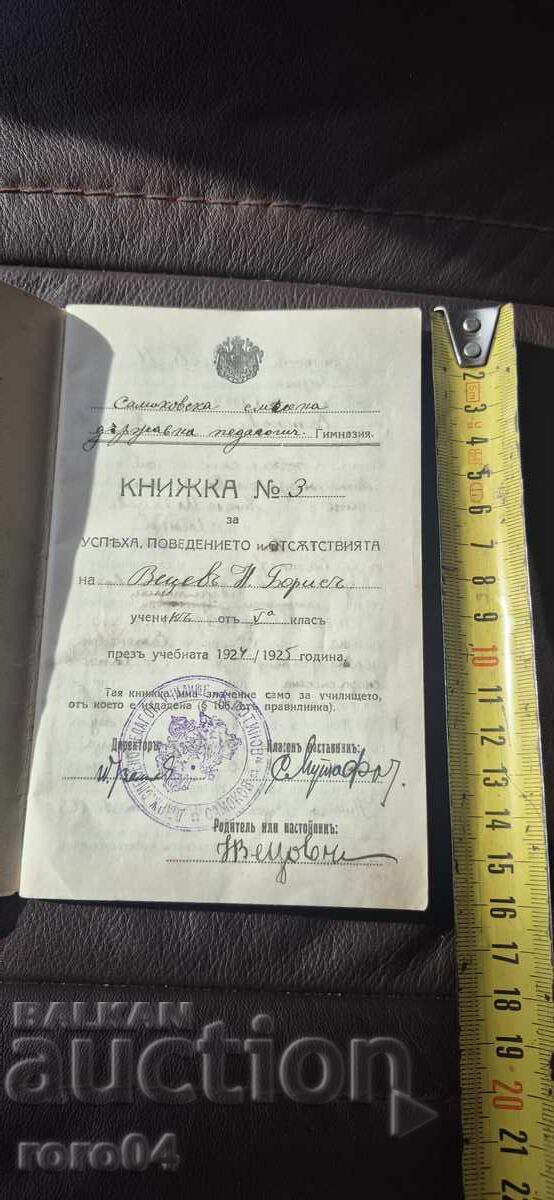 Самоковска смѣсна
държавна педагогич. Гимназия.
КНИЖКА № 3
за
УСПѢХА, ПОВЕДЕНИЕТО и ОТСѪТСТВИЯТА
на Вецевъ Н. Борисъ
ученикъ отъ Vа класъ
презъ учебната 1924/1925 година.
Тая книжка има значение само за училището,
отъ което е издадена (§ 106 отъ правилника).
Директоръ: Класенъ наставникъ:
С. Мутафо
Родитель или настойникъ:
НВецовъ
САМОКОВЪ
2
3
4
5
6
7
8
9
10
11
12
13
14
15
16
17
18
19
20
21
BALKAN
auction
roro04